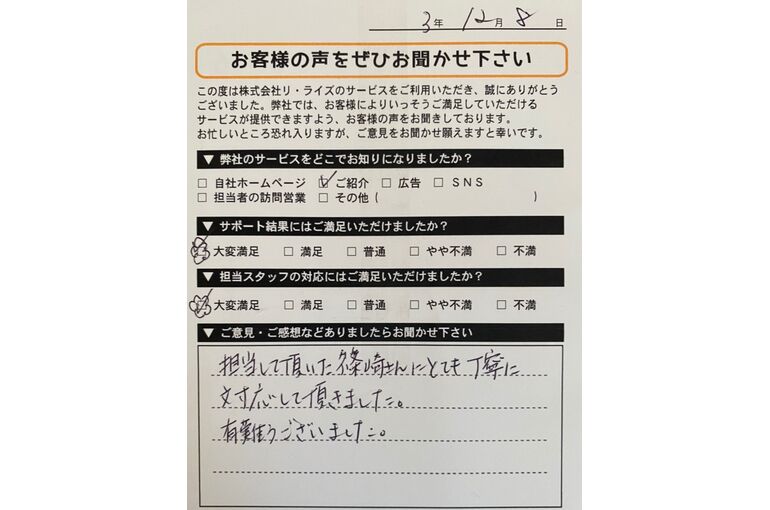 3年 12月 8日
お客様の声をぜひお聞かせ下さい
この度は株式会社リ・ライズのサービスをご利用いただき、誠にありがとう
ございました。弊社では、お客様によりいっそうご満足していただける
サービスが提供できますよう、お客様の声をお聞きしております。
お忙しいところ恐れ入りますが、ご意見をお聞かせ願えますと幸いです。
▼ 弊社のサービスをどこでお知りになりましたか？
□ 自社ホームページ ☑ ご紹介 □ 広告 □ SNS
□ 担当者の訪問営業 □ その他 ( )
▼ サポート結果にはご満足いただけましたか？
大変満足 □ 満足 □ 普通 □ やや不満 □ 不満
▼ 担当スタッフの対応にはご満足いただけましたか？
大変満足 □ 満足 □ 普通 □ やや不満 □ 不満
▼ ご意見・ご感想などありましたらお聞かせ下さい
担当して頂いた篠崎さんにとても丁寧に
対応して頂きました。
有難うございました。